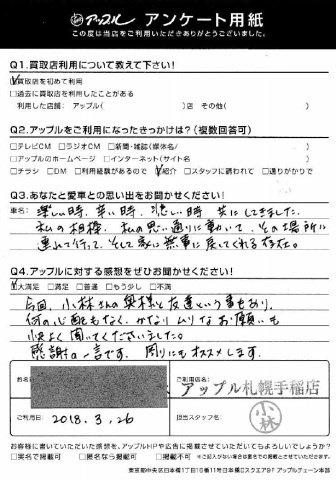 アップル アンケート用紙
この度は当店をご利用いただきありがとうございました。
Q1.買取店利用について教えて下さい!
☑買取店を初めて利用
□過去に買取店を利用したことがある
利用した店舗: アップル( )店 その他( )
Q2.アップルをご利用になったきっかけは?(複数回答可)
□テレビCM □ラジオCM □新聞・雑誌(媒体名 )
□アップルのホームページ □インターネット(サイト名 )
□チラシ □DM □利用経験があるので ☑紹介 □スタッフに誘われて □通りがかりで
Q3.あなたと愛車との思い出をお聞かせください!
車名: 楽しい時、辛い時、悲しい時 共にしてきました。
私の相棒。私の思い通りに動いて、その場所に
連れて行って、そして家に無事に戻ってくれる存在。
Q4.アップルに対する感想をぜひお聞かせください!
☑大満足 □満足 □普通 □もう少し □不満
今回、小林さんの奥様と友達という事もあり、
何の心配もなく、かなりムリなお願いも
快よく聞いてくださいました。
感謝の一言です。周りにもオススメします。
ご利用店名
アップル札幌手稲店
ご利用日 2018.3.26
担当スタッフ名
小林
お客様に書いていただいた感想を、アップルHPや広告に掲載させていただいてもよろしいでしょうか?
□実名で掲載可 □匿名なら掲載可 □掲載不可 ※ご記入がない場合は匿名での掲載とさせていただきます。
東京都中央区日本橋1丁目16番11号日本橋Dスクエア9F アップルチェーン本部